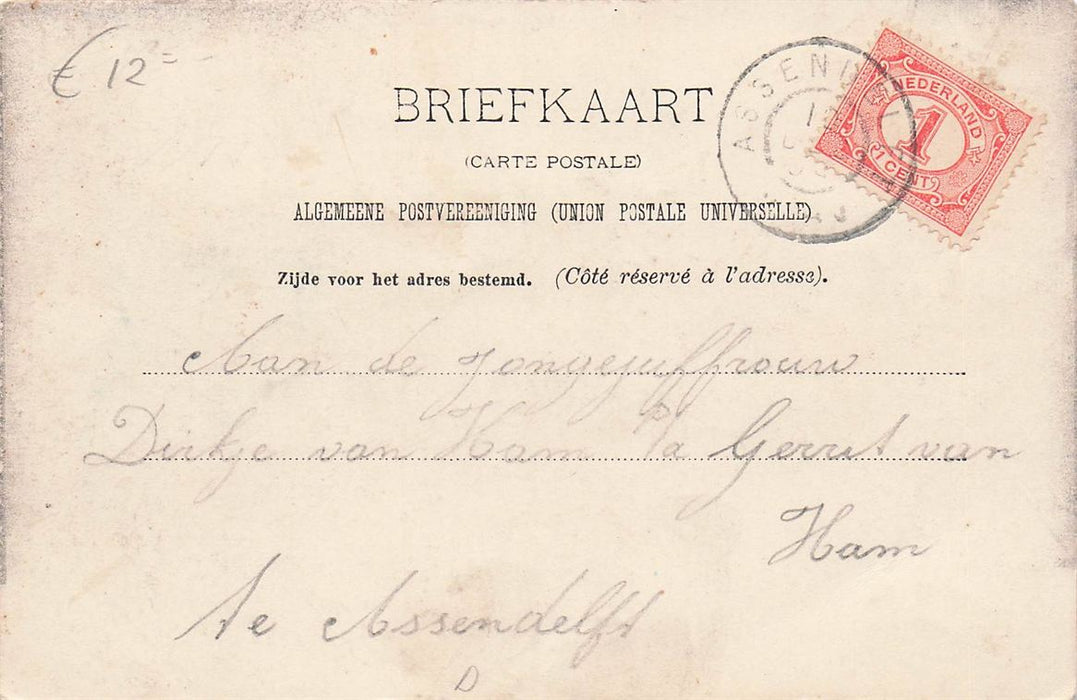 € 12=
BRIEFKAART
(CARTE POSTALE)
ALGEMEENE POSTVEREENIGING (UNION POSTALE UNIVERSELLE)
Zijde voor het adres bestemd. (Côté réservé à l'adresse).
NEDERLAND
1
1 CENT
Aan de Jongejuffrouw
Dirkje van Ham p/a Gerrit van
Ham
te Assendelft
D